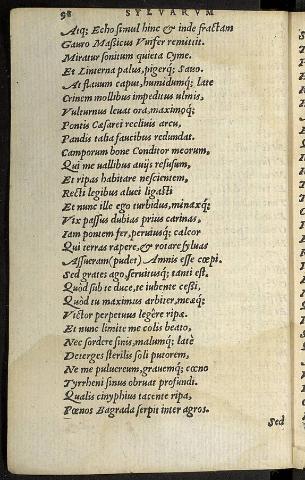 98 SYLVARVM
Atq; Echo simul hinc & inde fractam
Gauro Massicus Vuifer remittit.
Miratur sonitum quieta Cyme.
Et Linterna palus, pigerq; Sauo.
At flauum caput, humidumq; late
Crinem mollibus impeditus vlmis,
Vulturnus leuat ora, maximoq;
Pontis Cæsarei recliuis arcu,
Pandis talia faucibus redundat.
Camporum bone Conditor meorum,
Qui me uallibus auijs refusum,
Et ripas habitare nescientem,
Recti legibus aluei ligasti
Et nunc ille ego turbidus, minaxq;
Vix passus dubias prius carinas,
Iam pontem fer, peruiusq; calcor
Qui terras rapere, & rotare syluas
Assueram (pudet) Amnis esse cœpi.
Sed grates ago, seruitusq; tanti est.
Quòd sub te duce, te iubente cessi,
Quòd tu maximus arbiter, meæq;
Victor perpetuus legére ripæ.
Et nunc limite me colis beato,
Nec sordere sinis, malumq; latè
Deterges sterilis soli putorem,
Ne me puluereum, grauemq; cœno
Tyrrheni sinus obruat profundi.
Qualis cinyphius tacente ripa,
Pœnos Bagrada serpit inter agros.
Sed